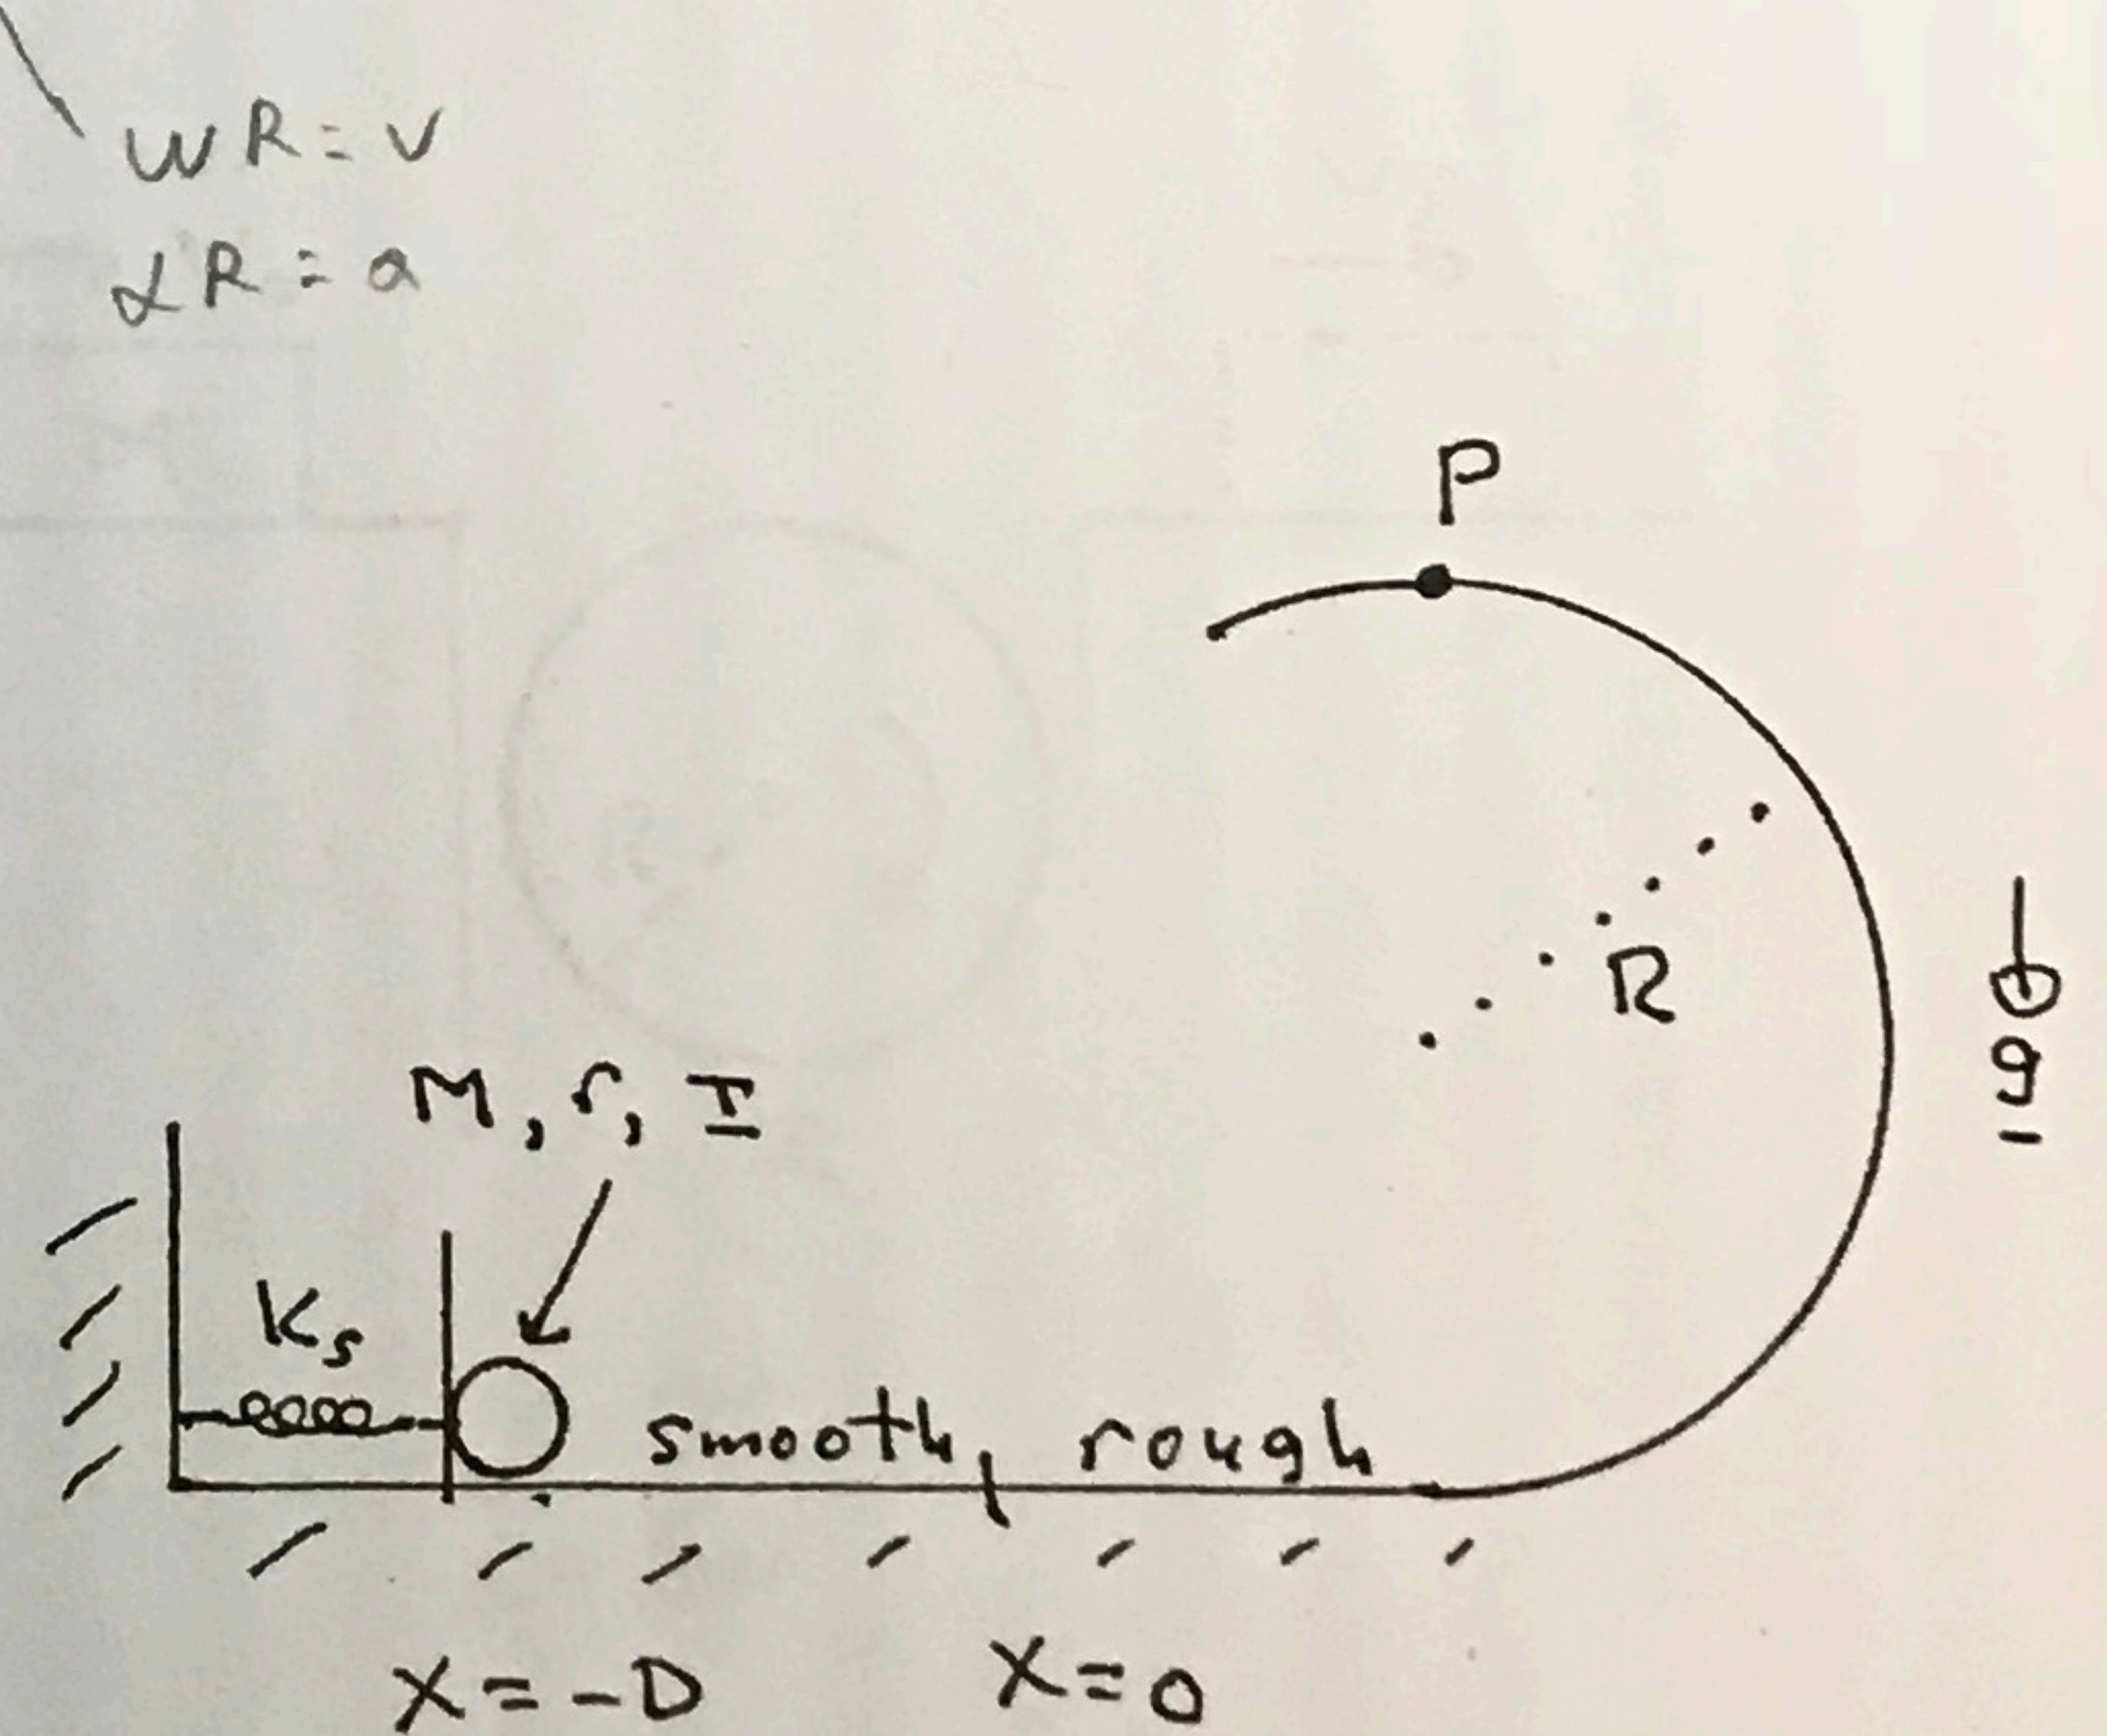 WR = V
αR = a
P
R
g
M, r, I
Ks
smooth, rough
X = -D
X = 0